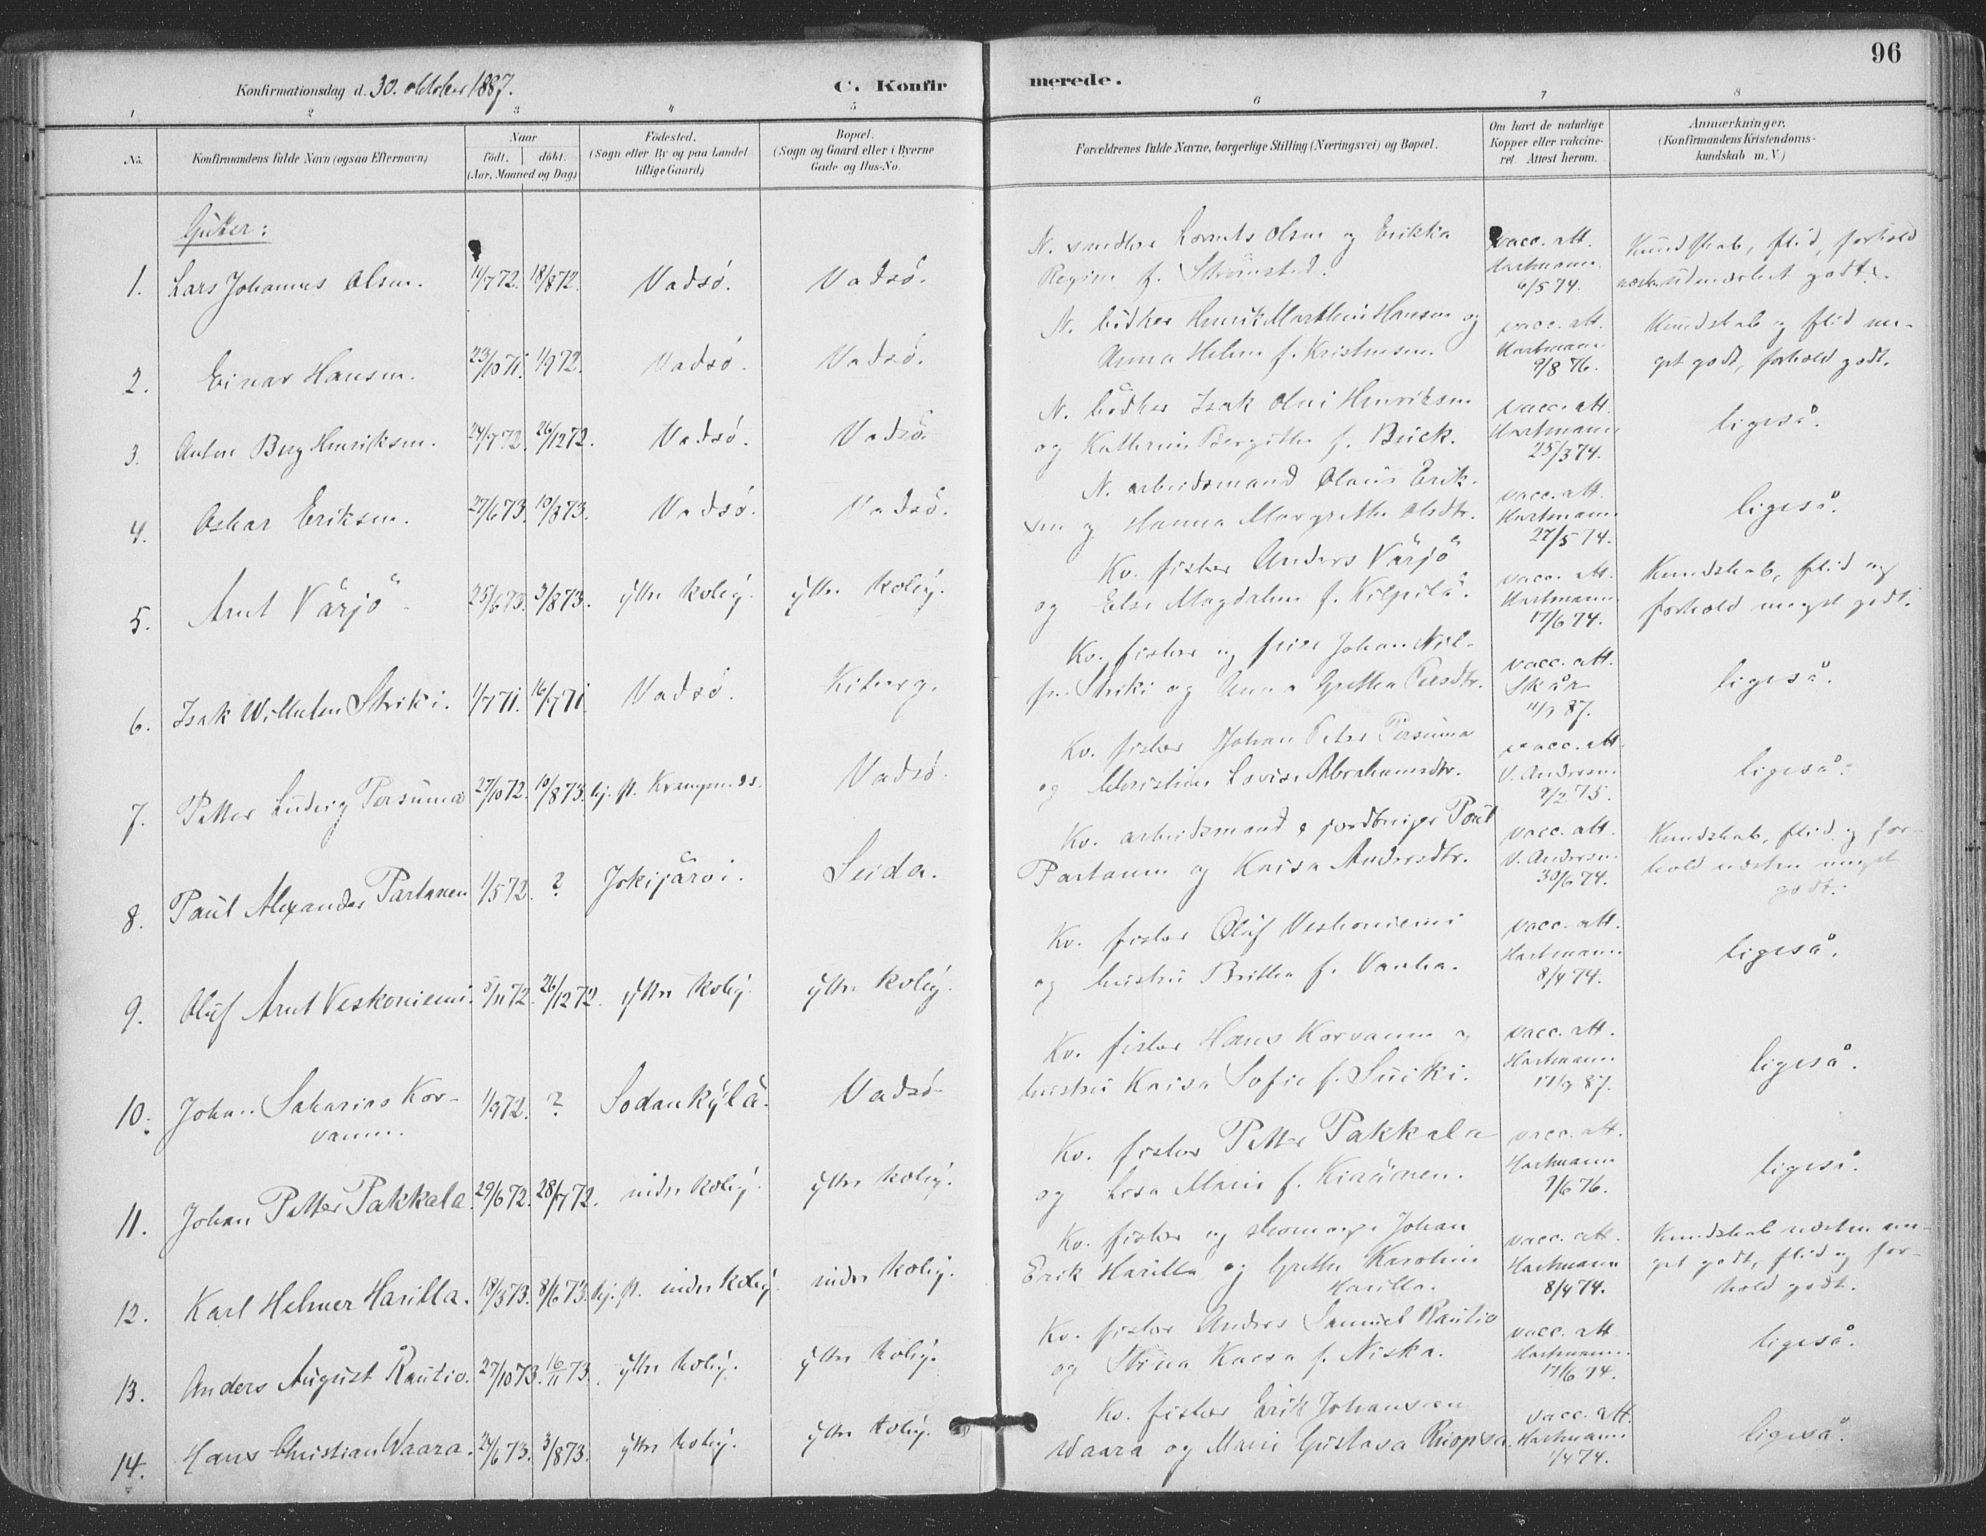 96
Konfirmationsdag d. 30. oktober 1887. C. Konfirmerede.
1 2 3 4 5 6 7 8
No. Konfirmandens fulde Navn (ogsaa Efternavn) Naar født. døbt. (Aar, Maaned og Dag) Fødested. (Sogn eller By og paa Landet tillige Gaard) Bopæl. (Sogn og Gaard eller i Byerne Gade og Hus-No. Forældrenes fulde Navne, borgerlige Stilling (Næringsvei) og Bopæl. Om havt de naturlige Kopper eller vakcineret Attest herom. Anmærkninger. (Konfirmandens Kristendomskundskab m. V.)
Gutter:
1. Lars Johannes Olsen. 11/7 72. 18/8 72. Vadsö. Vadsö. N. snedker Lornts Olsen og Erikka
Regine f. Strömsted. vacc. att. Hartmann. 6/5 74. Kundskab, flid, forhold
udmærket godt.
2. Einar Hansen. 23/10 71. 1/9 72. Vadsö. Vadsö. N. bödker Henrik Marthin Hansen og
Anna Helene f. Kristensen. vacc. att. Hartmann 9/8 76. Kundskab og flid me-
get godt, forhold godt.
3. Anton Berg Henriksen. 24/7 72. 26/12 72. Vadsö. Vadsö. N. bödker Isak Olai Henriksen
og Kathrine Bergitte f. Beück. vacc. att. Hartmann 25/3 74. ligeså.
4. Oskar Eriksen. 27/6 73. 10/8 73. Vadsö. Vadsö. N. arbeidsmand Olaus Erik-
sen og Hanna Margrethe Olsdtr. vacc. att. Hartmann 27/5 74. ligeså.
5. Arnt Värjö. 25/6 73. 3/8 73. ytre Kvbý. ytre Kvbý. Kv. fisker Anders Värjö
og Else Magdalene f. Kilpilä. vacc. att. Hartmann. 17/6 74. Kundskab, flid og
forhold meget godt.
6. Isak Wilhelm Striki. 1/7 71. 16/7 71. Vadsö. Kiberg. Kv. fisker og Johan
Striki og Anna Gretha Persdtr. vacc. att. Skår 11/9 87. ligeså.
7. Petter Ludvig Persuma 27/10 72. 10/8 73. hj. st. Krampenes. Vadsö. Kv. fisker Johan Peter Persuma
og Christine Lovise Abrahamsdtr. vacc. att. V. Andersen 9/2 75. ligeså.
8. Paul Alexander Partanen 1/5 72. ? Jokijärvi. Seida. Kv. arbeidsmand & jordbruger Paul
Partanen og Kaisa Andersdtr. vacc. att. V. Andersen 30/6 74. Kundskab, flid og for-
hold næsten meget
godt.
9. Oluf Arnt Veskoniemi. 5/11 72. 26/12 72. ytre Kvbý. ytre Kvbý. Kv. fisker Oluf Veskoniemi
og hustru Britha f. Vanha. vacc. att. Hartmann 8/4 74. ligeså.
10. Johan Sakarias Kor-
vanen. 1/9 72. ? Sodankýlä. Vadsö. Kv. fisker Hans Korvanen og
hustru Kaisa Sofie f. Suiki. vacc. att. Hartmann 17/9 87. ligeså.
11. Johan Petter Pakkala. 29/6 72. 28/7 72. indre Kvbý. ytre Kvbý. Kv. fisker Petter Pakkala
og Lisa Marie f. vacc. att. Hartmann 7/6 76. ligeså.
12. Karl Helmer Harilla. 18/3 73. 8/6 73. hj. st. indre Kvbý. indre Kvbý. Kv. fisker og Johan
Erik Harilla og Grethe Karoline
Harilla. vacc. att. Hartmann 8/4 74. Kundskab næsten me-
get godt, flid og for-
hold godt.
13. Anders August Rautio. 27/10 73. 16/11 73. ytre Kvbý. ytre Kvbý. Kv. fisker Anders Samuel Rautio
og Stina Kaesa f. Niska. vacc. att. Hartmann. 17/6 74. ligeså.
14. Hans Christian Waara. 24/6 73. 3/8 73. ytre Kvbý. ytre Kvbý. Kv. fisker Erik Johansen
Waara og Marie Gustava Ruopsa. vacc. att. Hartmann 1/4 74. ligeså.